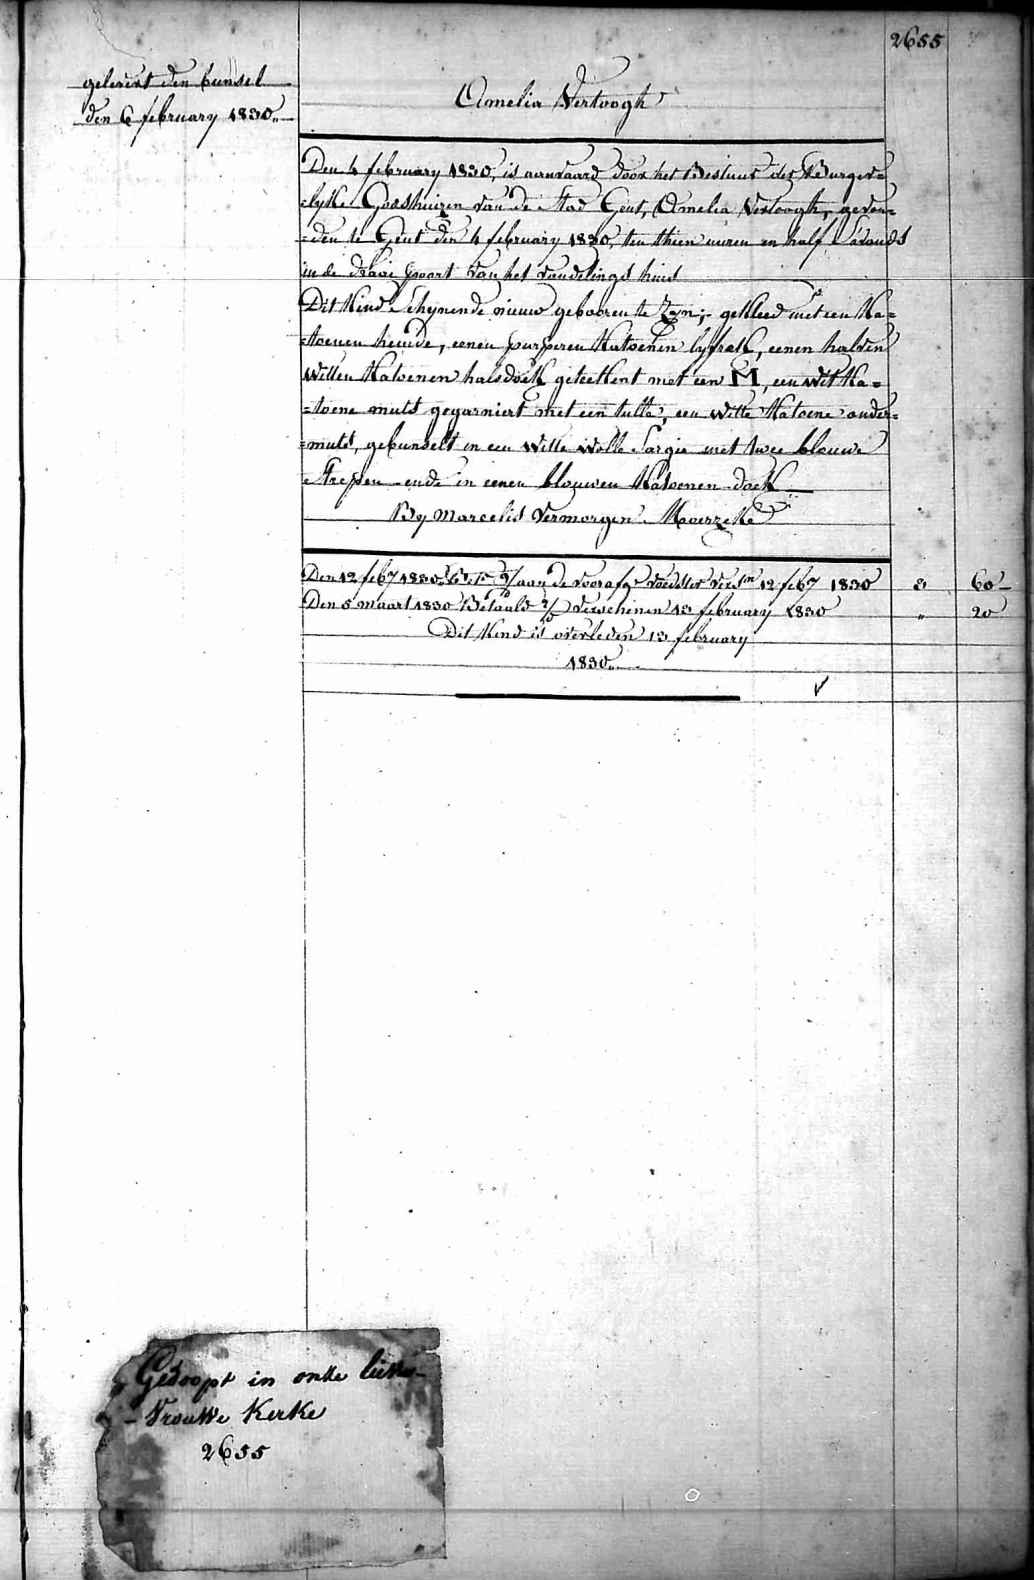 2655
gelevert den bunsel
den 6 february 1830.,
Amelia Vertoogh
Den 4 february 1830, is aanvaard door het Bestuur der Burger=
=lyke Godshuizen van de Stad Gent, Amelia Vertoogh, gevon=
=den te Gent den 4 february 1830, ten thien uuren en half s'avonds
in de draai poort van het vondelings huis
Dit Kind schynende nieuw gebooren te zyn; gekleed met een Ka=
=toenen hemde, eenen purperen Katoenen lyfrok, eenen halven
Witten Katoenen halsdoek geteekent met een M, een Wit Ka=
=toene muts gegarniert met een tulle, een Witte Katoene onder=
=muts, gebunselt in een Witte Wolle Sargie met twee blauwe
strepen ende in eenen blauwen Katoenen doek
By Marcelis Vermorgen Moerzeke
Den 12 feby 1830 aan de voorafge voedster 12 feby 1830 3 60
Den 5 maart 1830 Betaald verschenen 13 february 1830 " 20
Dit Kind is overleden 13 february
1830.,
Gedoopt in onse lieve-
-Vrouwe Kerke
2655